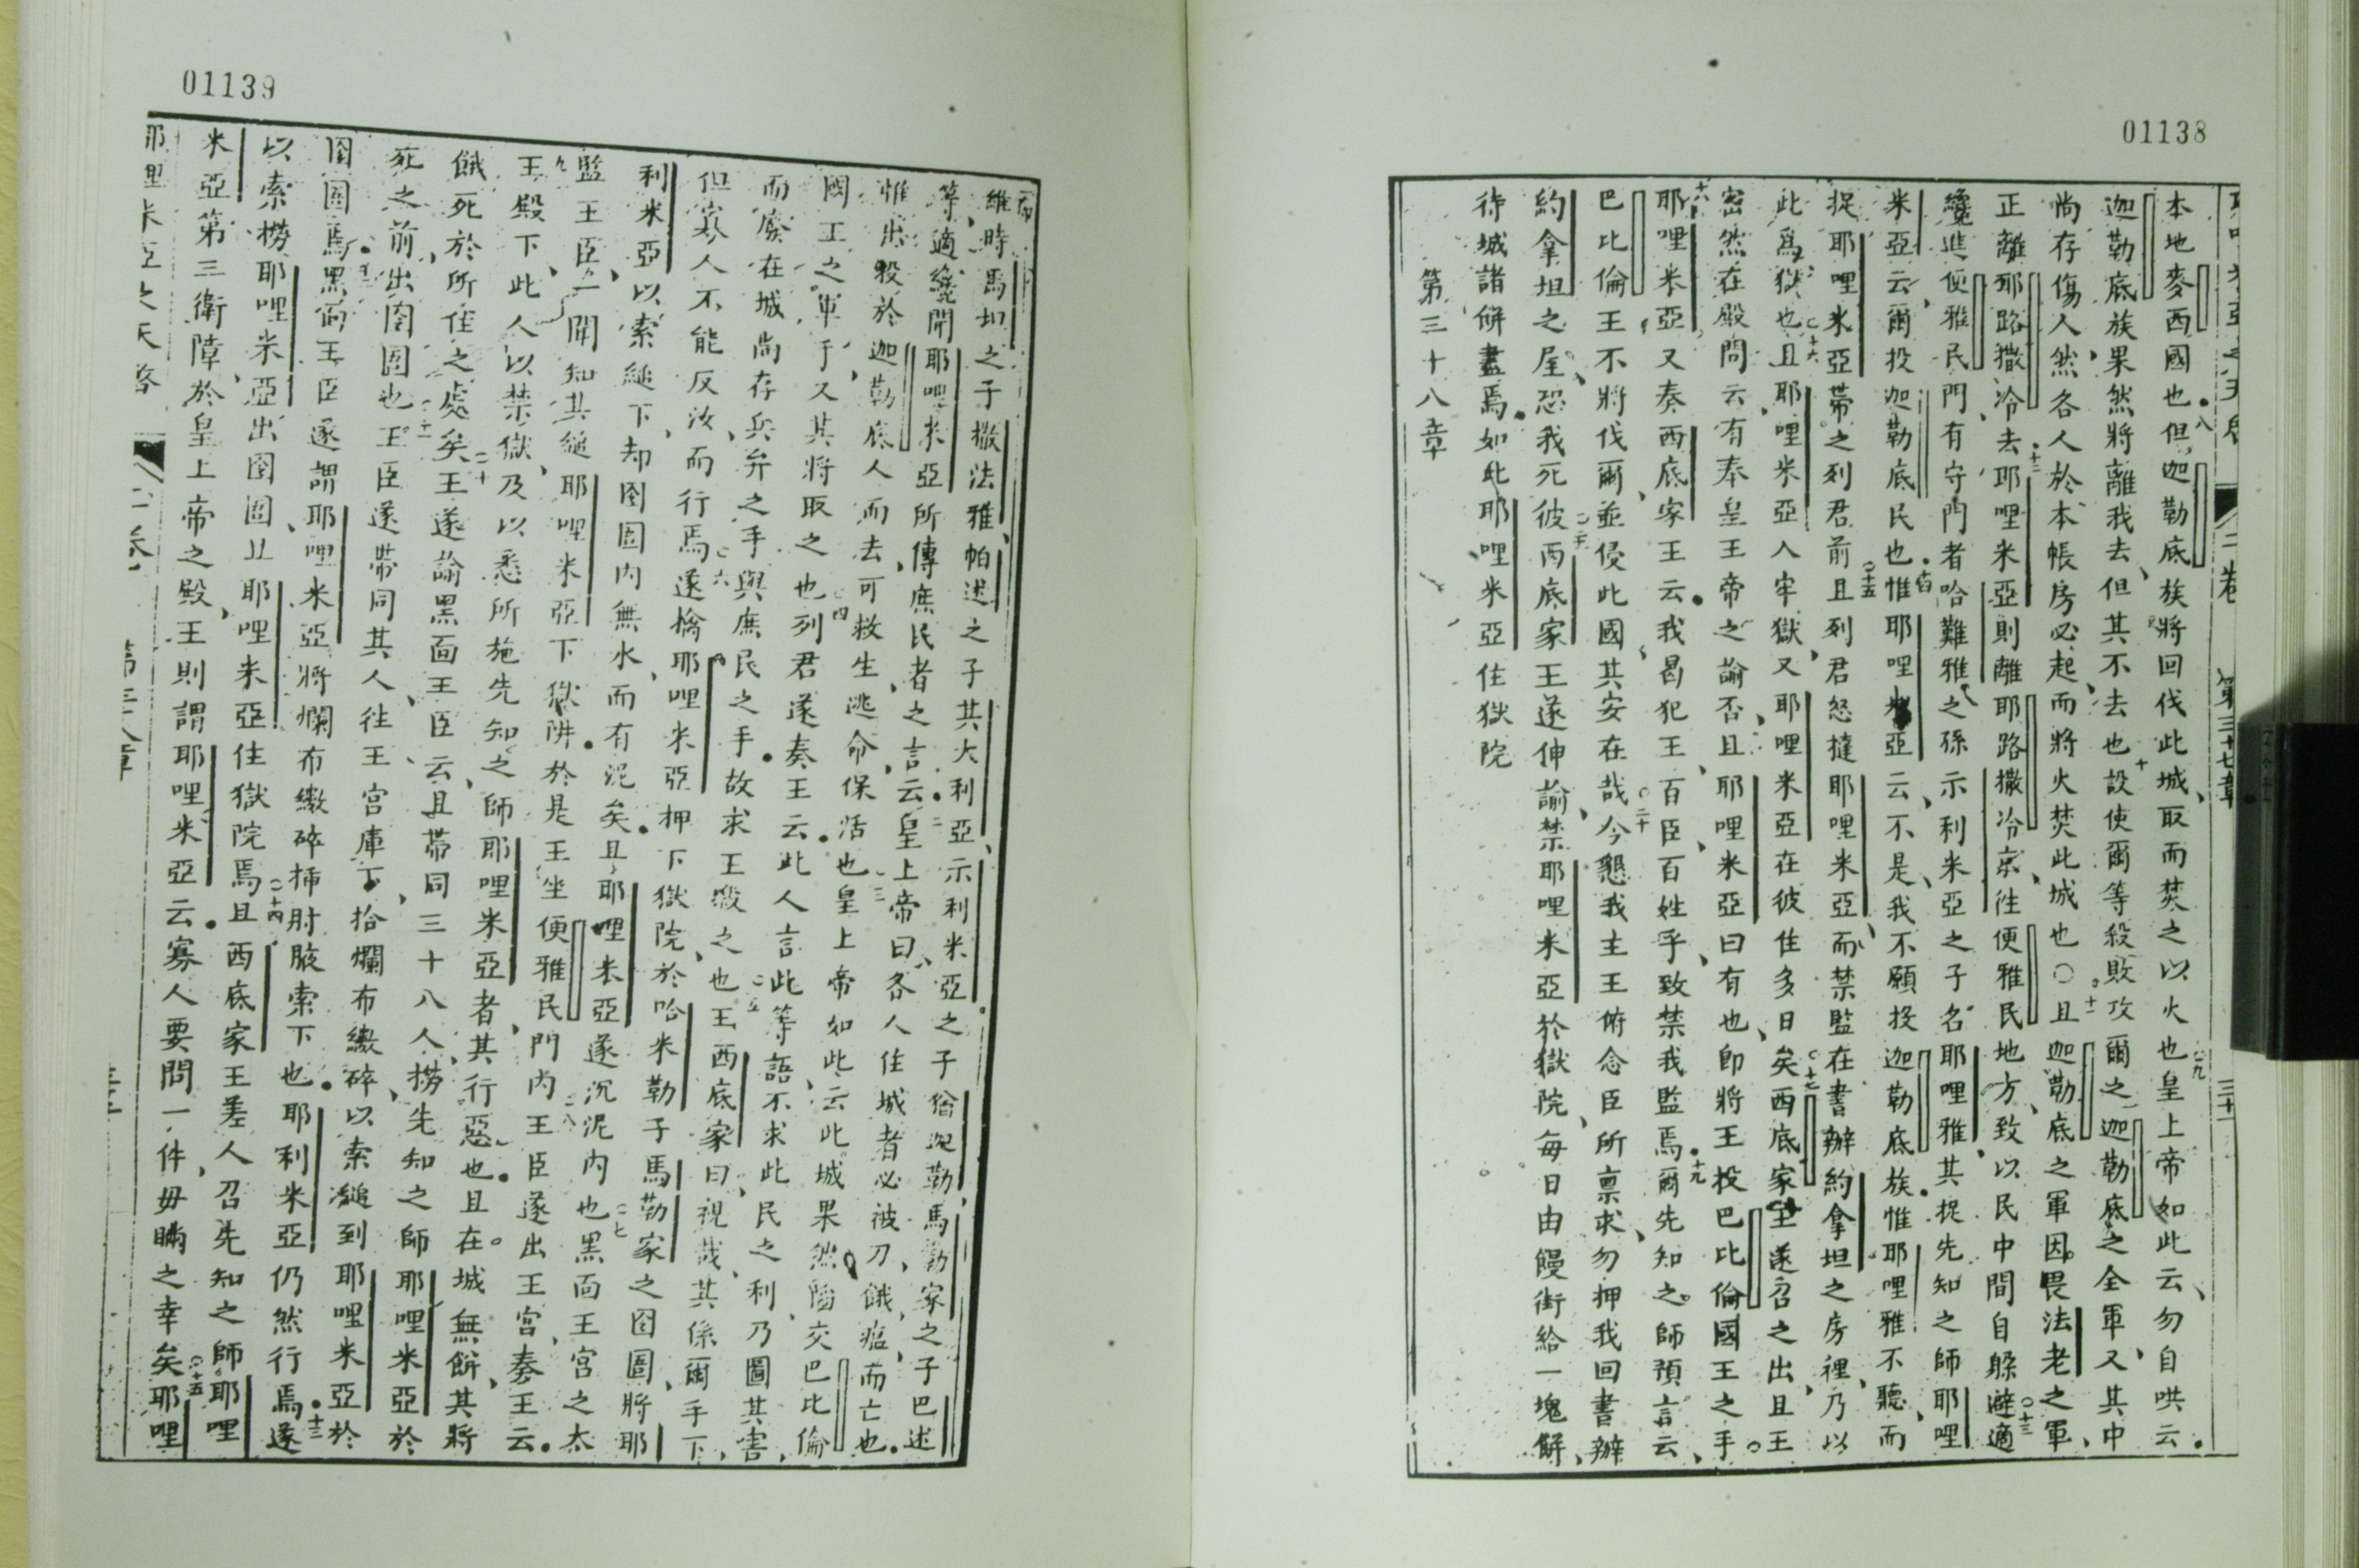 01138
第三十七章
本地麥西國也但迦勒底族將回伐此城取而焚之以火也皇上帝如此云勿自哄云
迦勒底族果然將離我去但其不去也設使爾等殺敗攻爾之迦勒底之全軍又其中
尚存傷人然各人於本帳房必起而將火焚此城也〇且迦勒底之軍因畏法老之軍
正離耶路撒冷去耶哩米亞則離耶路撒冷京往便雅民地方致以民中間自躲避適
纔進便雅民門有守門者哈難雅之孫示利米亞之子名耶哩雅其捉先知之師耶哩
米亞云爾投迦勒底民也惟耶哩米亞云不是我不願投迦勒底族惟耶哩雅不聽而
捉耶哩米亞帶之列君前且列君怒撻耶哩米亞而禁監在書辦約拿坦之房裡乃以
此爲獄也且耶哩米亞入牢獄又耶哩米亞在彼住多日矣西底家王遂召之出且王
密然在殿問云有奉皇上帝之諭否且耶哩米亞曰有也即將王投巴比倫國王之手
耶哩米亞又奏西底家王云我曷犯王百臣百姓乎致禁我監焉爾先知之師預言云
巴比倫王不將伐爾並侵此國其安在哉今懇我主王俯念臣所禀求勿押我回書辦
約拿坦之屋恐我死彼西底家王遂伸諭禁耶哩米亞於獄院每日由饅街給一塊餅
待城諸餅盡焉如此耶哩米亞住獄院
第三十八章
01139
維時馬坦之子撒法雅帕述之子其大利亞示利米亞之子猶迦勒馬勒家之子巴述
等適纔聞耶哩米亞所傳庶民者之言云皇上帝曰各人住城者必被刀餓瘟而亡也
惟出投於迦勒底人而去可救生逃命保活也皇上帝如此云此城果然陷交巴比倫
國王之軍手又其將取之也列君遂奏王云此人言此等語不求此民之利乃圖其害
而廢在城尚存兵弁之手與庶民之手故求王殺之也王西底家曰視哉其係爾手下
但寡人不能反汝而行焉遂擒耶哩米亞押下獄院於哈米勒子馬勒家之囹圄將耶
利米亞以索縋下却囹圄內無水而有泥矣且耶哩米亞遂沉泥內也黑面王宮之太
監王臣一聞知其縋耶哩米亞下獄阱於是王坐便雅民門內王臣遂出王宮奏王云
王殿下此人以禁獄及以悉所施先知之師耶哩米亞者其行惡也且在城無餅其將
餓死於所住之處矣王遂諭黑面王臣云且帶同三十八人撈先知之師耶哩米亞於
死之前出囹圄也王臣遂帶同其人往王宮庫下拾爛布繳碎以索縋到耶哩米亞於
囹圄焉黑面王臣遂謂耶哩米亞將爛布繳碎插肘腋索下也耶利米亞仍然行焉遂
以索撈耶哩米亞出囹圄且耶哩米亞住獄院焉且西底家王差人召先知之師耶哩
米亞第三衛障於皇上帝之殿王則謂耶哩米亞云寡人要問一件毋瞞之幸矣耶哩